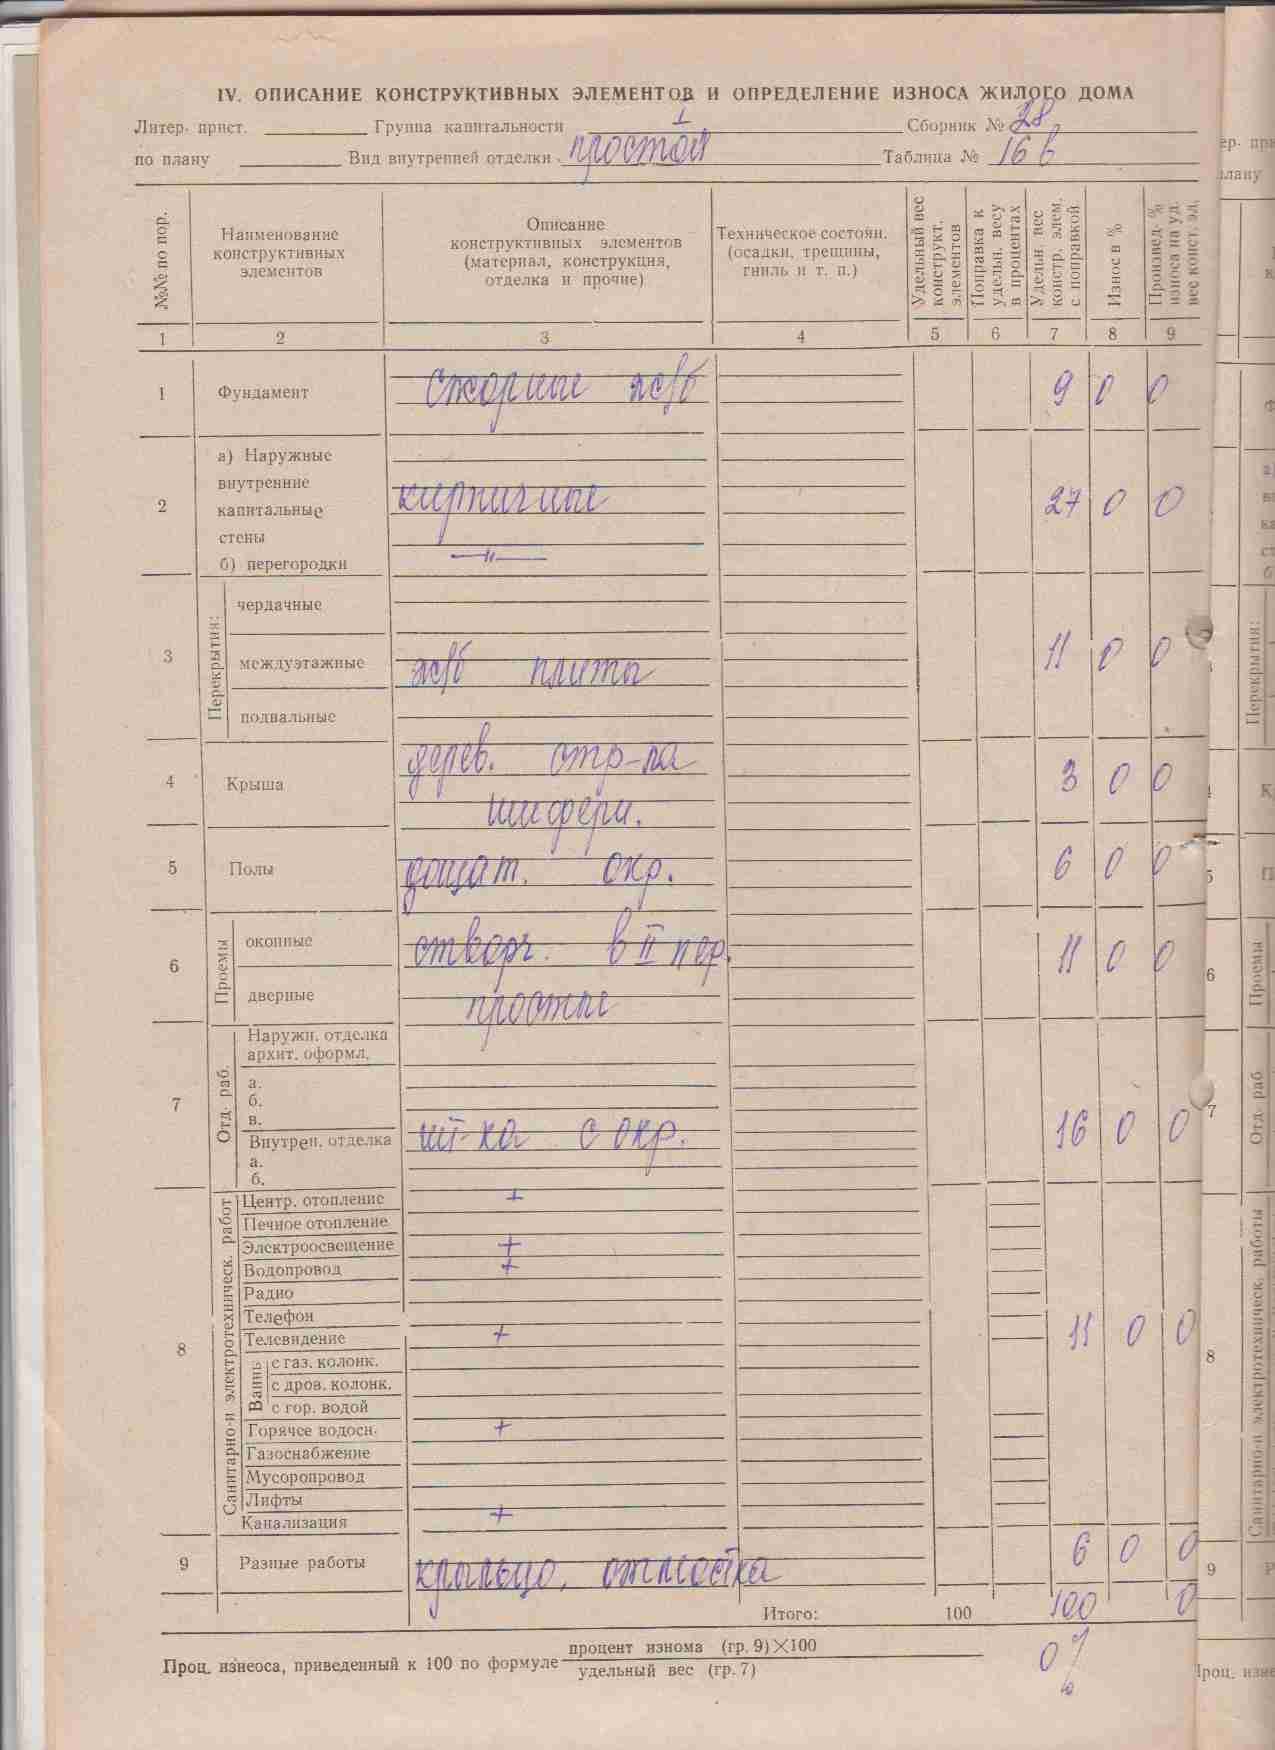 IV. ОПИСАНИЕ КОНСТРУКТИВНЫХ ЭЛЕМЕНТОВ И ОПРЕДЕЛЕНИЕ ИЗНОСА ЖИЛОГО ДОМА
Литер. прист. Группа капитальности I Сборник № 28
по плану Вид внутренней отделки простой Таблица № 16 в
№№ по пор.
Наименование конструктивных элементов
Описание конструктивных элементов (материал, конструкция, отделка и прочие)
Техническое состоян. (осадки, трещины, гниль и т. п.)
Удельный вес конструкт. элементов
Поправка к удельн. весу в процентах
Удельн. вес констр. элем. с поправкой.
Износ в %
Произвед % износа на уд. вес конст. эл.
1 2 3 4 5 6 7 8 9
1 Фундамент Сборные ж/б 9 0 0
2 а) Наружные
внутренние
капитальные
стены
кирпичные 27 0 0
б) перегородки —"—
3 Перекрытия:
чердачные
междуэтажные ж/б плиты 11 0 0
подвальные
4 Крыша дерев. стр-ла
шиферн. 3 0 0
5 Полы дощат. окр. 6 0 0
6 Проемы
оконные створч. в II пер. 11 0 0
дверные простые
7 Отд. раб.
Наружн. отделка
архит. оформл.
а.
б.
в.
Внутрен. отделка шт-ка с окр. 16 0 0
а.
б.
8 Санитарно-и электротехническ. работ
Центр. отопление +
Печное отопление
Электроосвещение +
Водопровод +
Радио
Телефон
Телевидение + 11 0 0
Ванны
с газ. колонк.
с дров. колонк.
с гор. водой
Горячее водосн. +
Газоснабжение
Мусоропровод
Лифты
Канализация +
9 Разные работы крыльцо, отмостка 6 0 0
Итого: 100 100 0
Проц. изнеоса, приведенный к 100 по формуле процент изнома (гр. 9)×100
удельный вес (гр. 7)
0%